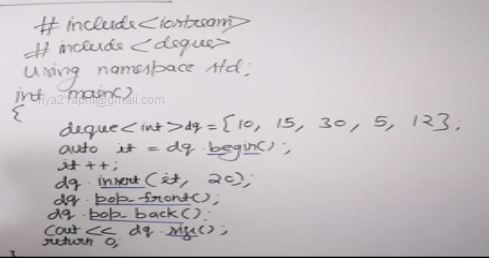 # include<iostream>
# include <deque>
using namespace std;
int main()
{
deque<int>dq = {10, 15, 30, 5, 12};
auto it = dq.begin();
it++;
dq.insert(it, 20);
dq.pop_front();
dq.pop_back();
cout << dq.size();
return 0;